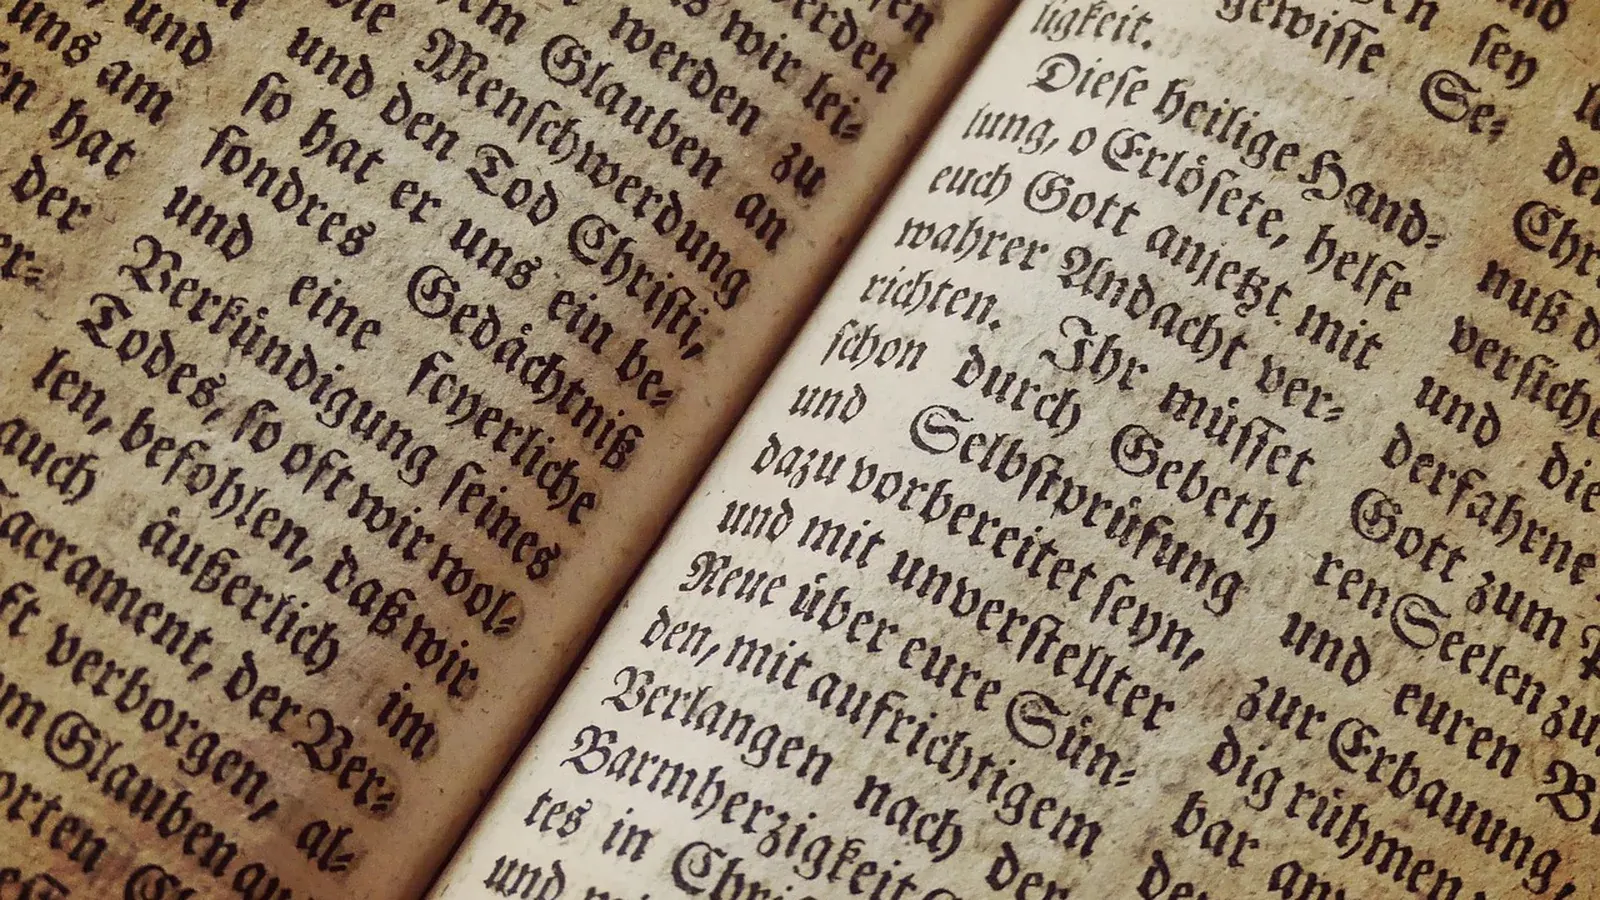 und
uns am
hat
der
werden
wir lei=
werden zu
Glauben an
die Menſchwerdung
und den Tod Chriſti,
ſo hat er uns ein be=
ſondres Gedächtniß
und eine feyerliche
Verkündigung ſeines
Todes, ſo oft wir wol=
len, befohlen, daß wir
auch äußerlich im
Sacrament, der Ver=
verborgen, al=
Glauben an
gewiſſe Se=
ligkeit.
Dieſe heilige Hand=
lung, o Erlöſete, helfe
euch Gott anjetzt mit
wahrer Andacht ver=
richten. Ihr müſſet
ſchon durch Gebeth
und Selbſtprüfung
dazu vorbereitet ſeyn,
und mit unverſtellter
Reue über eure Sün=
den, mit aufrichtigem
Verlangen nach der
Barmherzigkeit
tes in
und
ſey
nuß
und die
derfahrne
Gott zum
ren Seelen zu
und euren
zur Erbauung,
dig rühmen
bar